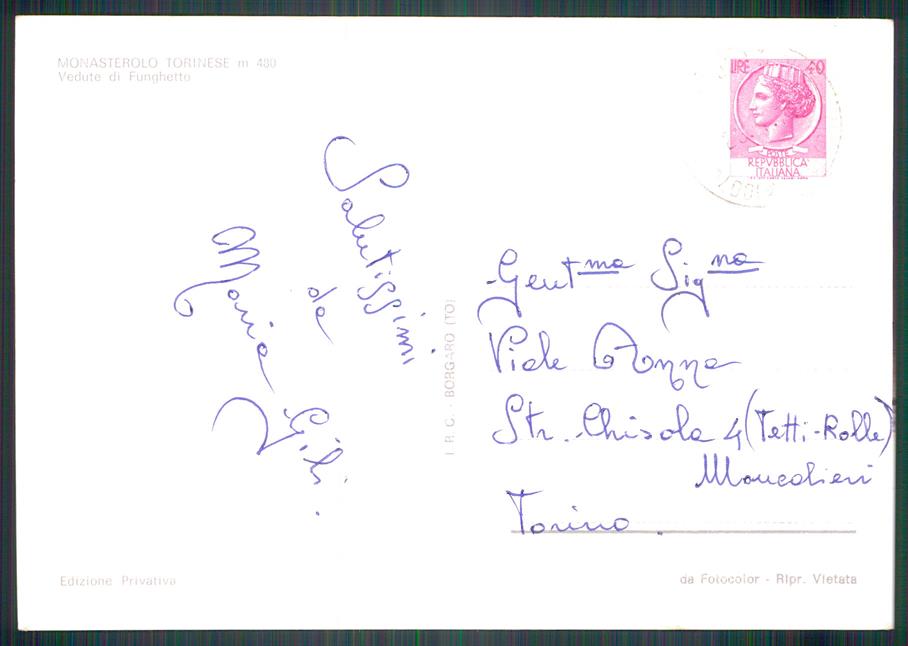 MONASTEROLO TORINESE m 480
Vedute di Funghetto
LIRE 40
POSTE
REPVBBLICA
ITALIANA
Salutissimi
da
Maria
Gili.
I.R.C. - BORGARO (TO)
Gent.ma Sig.na
Viale Anna
Str. Chisola 4 (Tetti-Rolle)
Moncalieri
Torino.
Edizione Privativa
da Fotocolor - Ripr. Vietata